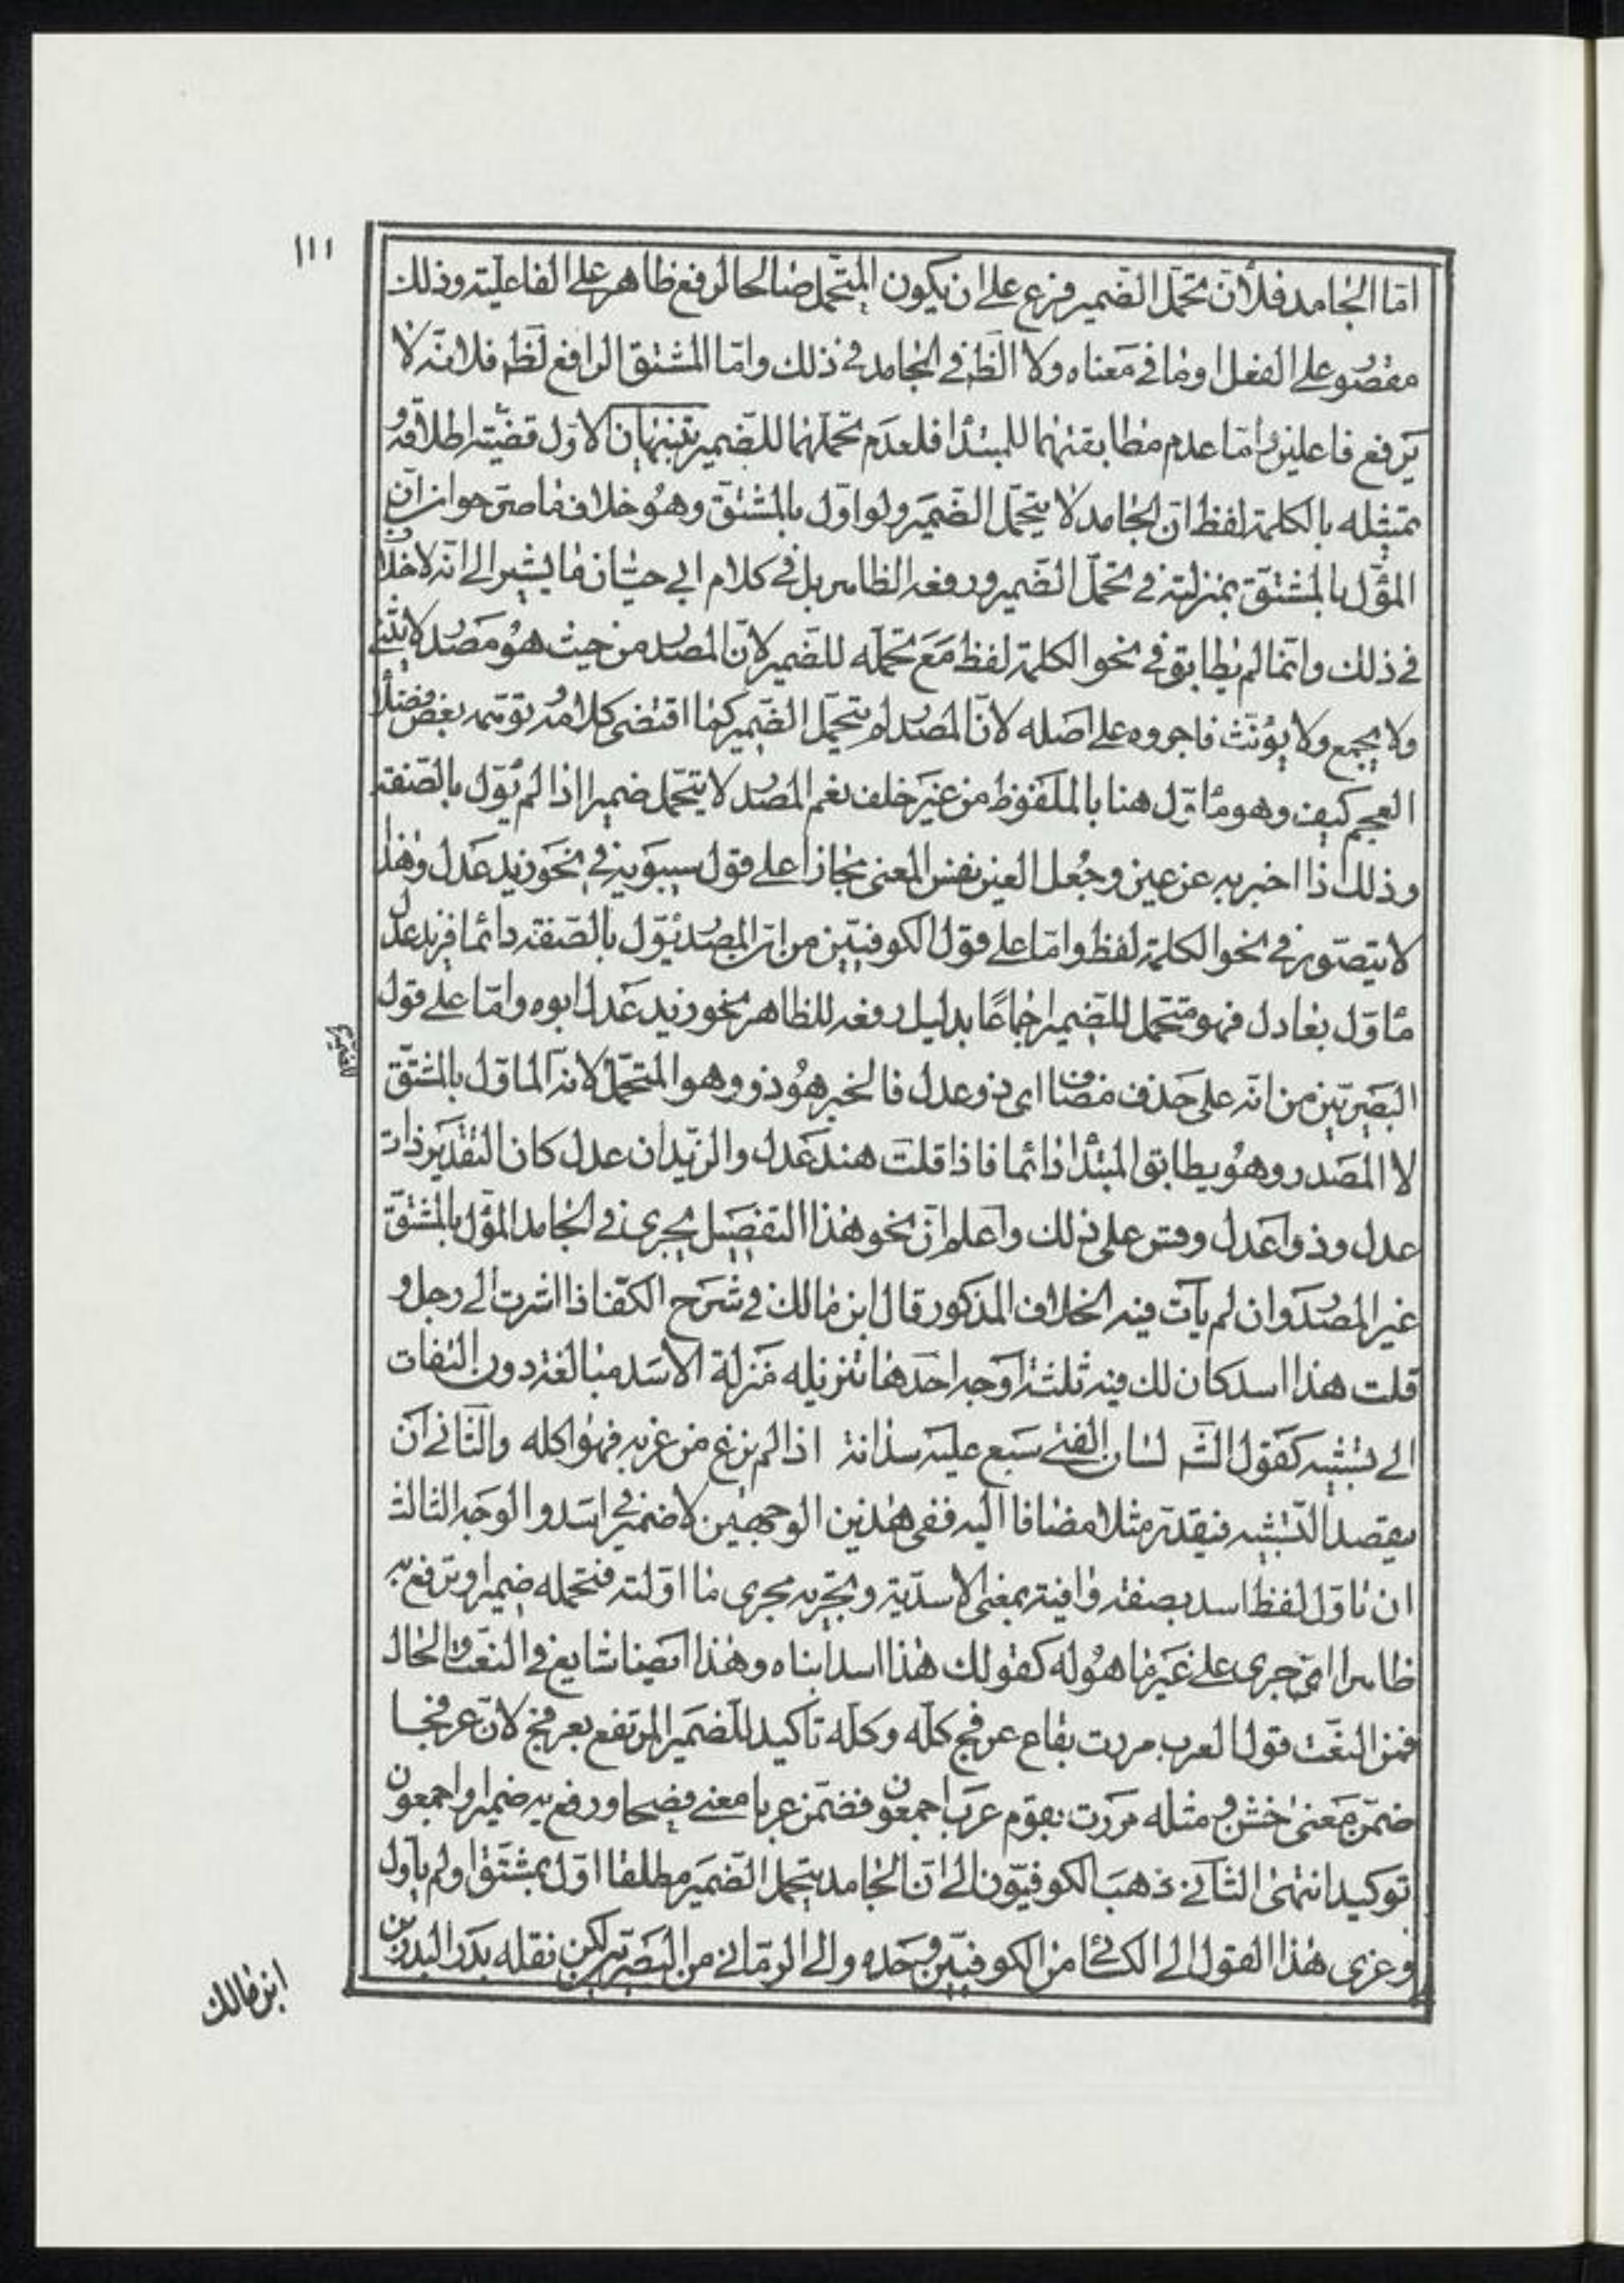 ١١١
امّا الجامد فلأنّ تحمّل الضمير فرع على ان يكون المتحمّل صالحا لرفع ظاهر على الفاعليّة وذلك
مقصور على الفعل او ما في معناه ولا الظ في الجامد في ذلك وامّا المشتق الرافع لظ فلانّه لا
يرفع فاعلين وامّا عدم مطابقتهما للمبتدأ فلعدم تحمّلهما للضمير تنبيهان الاوّل قضيّة اطلاقه و
تمثيله بالكلمة لفظ انّ الجامد لا يتحمّل الضمير ولو اوّل بالمشتقّ وهو خلاف ما صرّحوا من ان
المؤّل بالمشتقّ بمنزلته في تحمّل الضمير ورفعه الظاهر بل في كلام ابي حيّان ما يشير الى انه لا خلاف
في ذلك وانّما لم يطابق في نحو الكلمة لفظ مع تحمّله للضمير لانّ المصدر من حيث هو مصدر لا يثنّى
ولا يجمع ولا يؤنّث فاجروه على اصله لا انّ المصدر لم يتحمّل الضمير كما اقتضى كلامه توهّمه بعض فضلا
العجم كيف وهو مأوّل هنا بالملفوظ من غير خلف نعم المصدر لا يتحمّل ضميرا اذا لم يؤّل بالصّفة
وذلك اذا اخبر به عن عين وجُعل العين نفس المعنى مجازا على قول سيبويه في نحو زيد عدل وهذا
لا يتصوّر في نحو الكلمة لفظ وامّا على قول الكوفيّين من انّ المصدر يؤّل بالصّفة دائما فزيد عدل
مأوّل بعادل فهو متحمل للضمير اجماعًا بدليل رفعه للظاهر نحو زيد عدل ابوه وامّا على قول
البصريّين من انّه على حذف مضاف اى ذو عدل فالخبر هو ذو وهو المتحمّل لانه المأوّل بالمشتقّ
للضمير
لا المصدر وهو يطابق المبتدأ دائما فاذا قلت هند عدل والزيدان عدل كان التقدير ذات
عدل وذوا عدل وقس على ذلك واعلم انّ نحو هذا التفصيل يجرى في الجامد المؤّل بالمشتقّ
غير المصدر وان لم يأت فيه الخلاف المذكور قال ابن مالك في شرح الكفا اذا اشرت الى رجل و
قلت هذا اسد كان لك فيه ثلثة اوجه احدها تنزيله منزلة الاسد مبالغة دون التفات
الى تشبيه كقول الشّ لسان الفتى سبع عليه سذاته اذا لم يزع من غربه فهو اكله والثّاني ان
يقصد التّشبيه فيقدّر مثلا مضافا اليه ففي هذين الوجهين لا ضمير في اسد والوجه الثالث
ان تأوّل لفظ اسد بصفة وافية بمعنى الاسديّة وتجريه مجرى ما اوّلته فتحمله ضميرا وترفع به
ظاهرا ان جرى على غير ما هو له كقولك هذا اسد ابناه وهذا ايضا شايع في النعت والحال
فمن النعت قول العرب مررت بقاع عرفج كلّه وكلّه تأكيد للضمير المرتفع بعرفج لانّ عرفجا
ضمّن معنى خشن ومثله مررت بقوم عرب اجمعون فضمّن عربا معنى فصحا ورفع به ضميرا واجمعون
توكيد انتهى الثاني ذهب الكوفيّون الى انّ الجامد يتحمل الضمير مطلقا اوّل بمشتق او لم يأول
وعزى هذا القول الى الكسائى من الكوفيّين وحده والى الرمّاني من البصريّين لكن نقله بدر الدين بن
ابن مالك